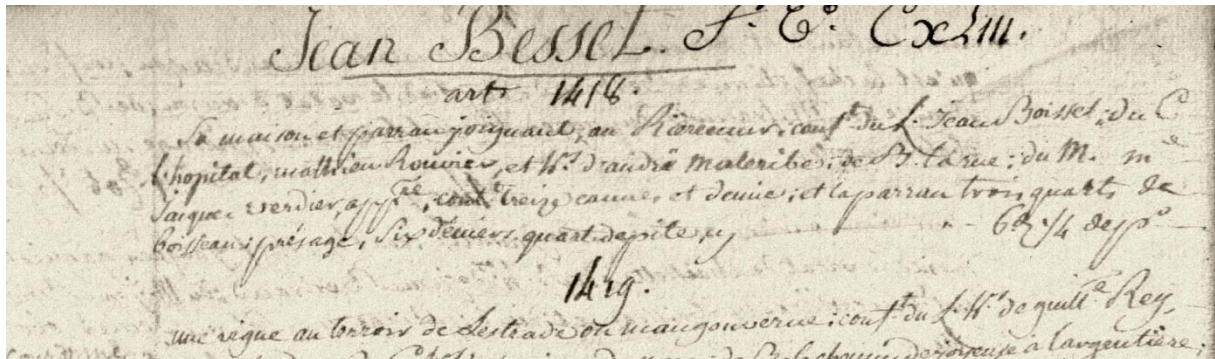 Jean Besset. f.° E.° Cxlııı.
art 1418.
Sa maison et parran joignant, au Rieremur; conf.t du L. Jean Boisset; du C
l'hopital, mathieu Rouvier, et h.s d'andré maleribe; de B. la rue; du M. m.e
Jaques verdier, app.re, cont.t treize cannes et demie; et la parran trois quarts de
boisseau; présage, six deniers quart de pite, cy - - 6d ¼ de p.e
1419.
une vigne au terroir de Lestrade ou maugouverne; conf.t du L. h.s de guill.e Rey,
de joyeuse a largentière;